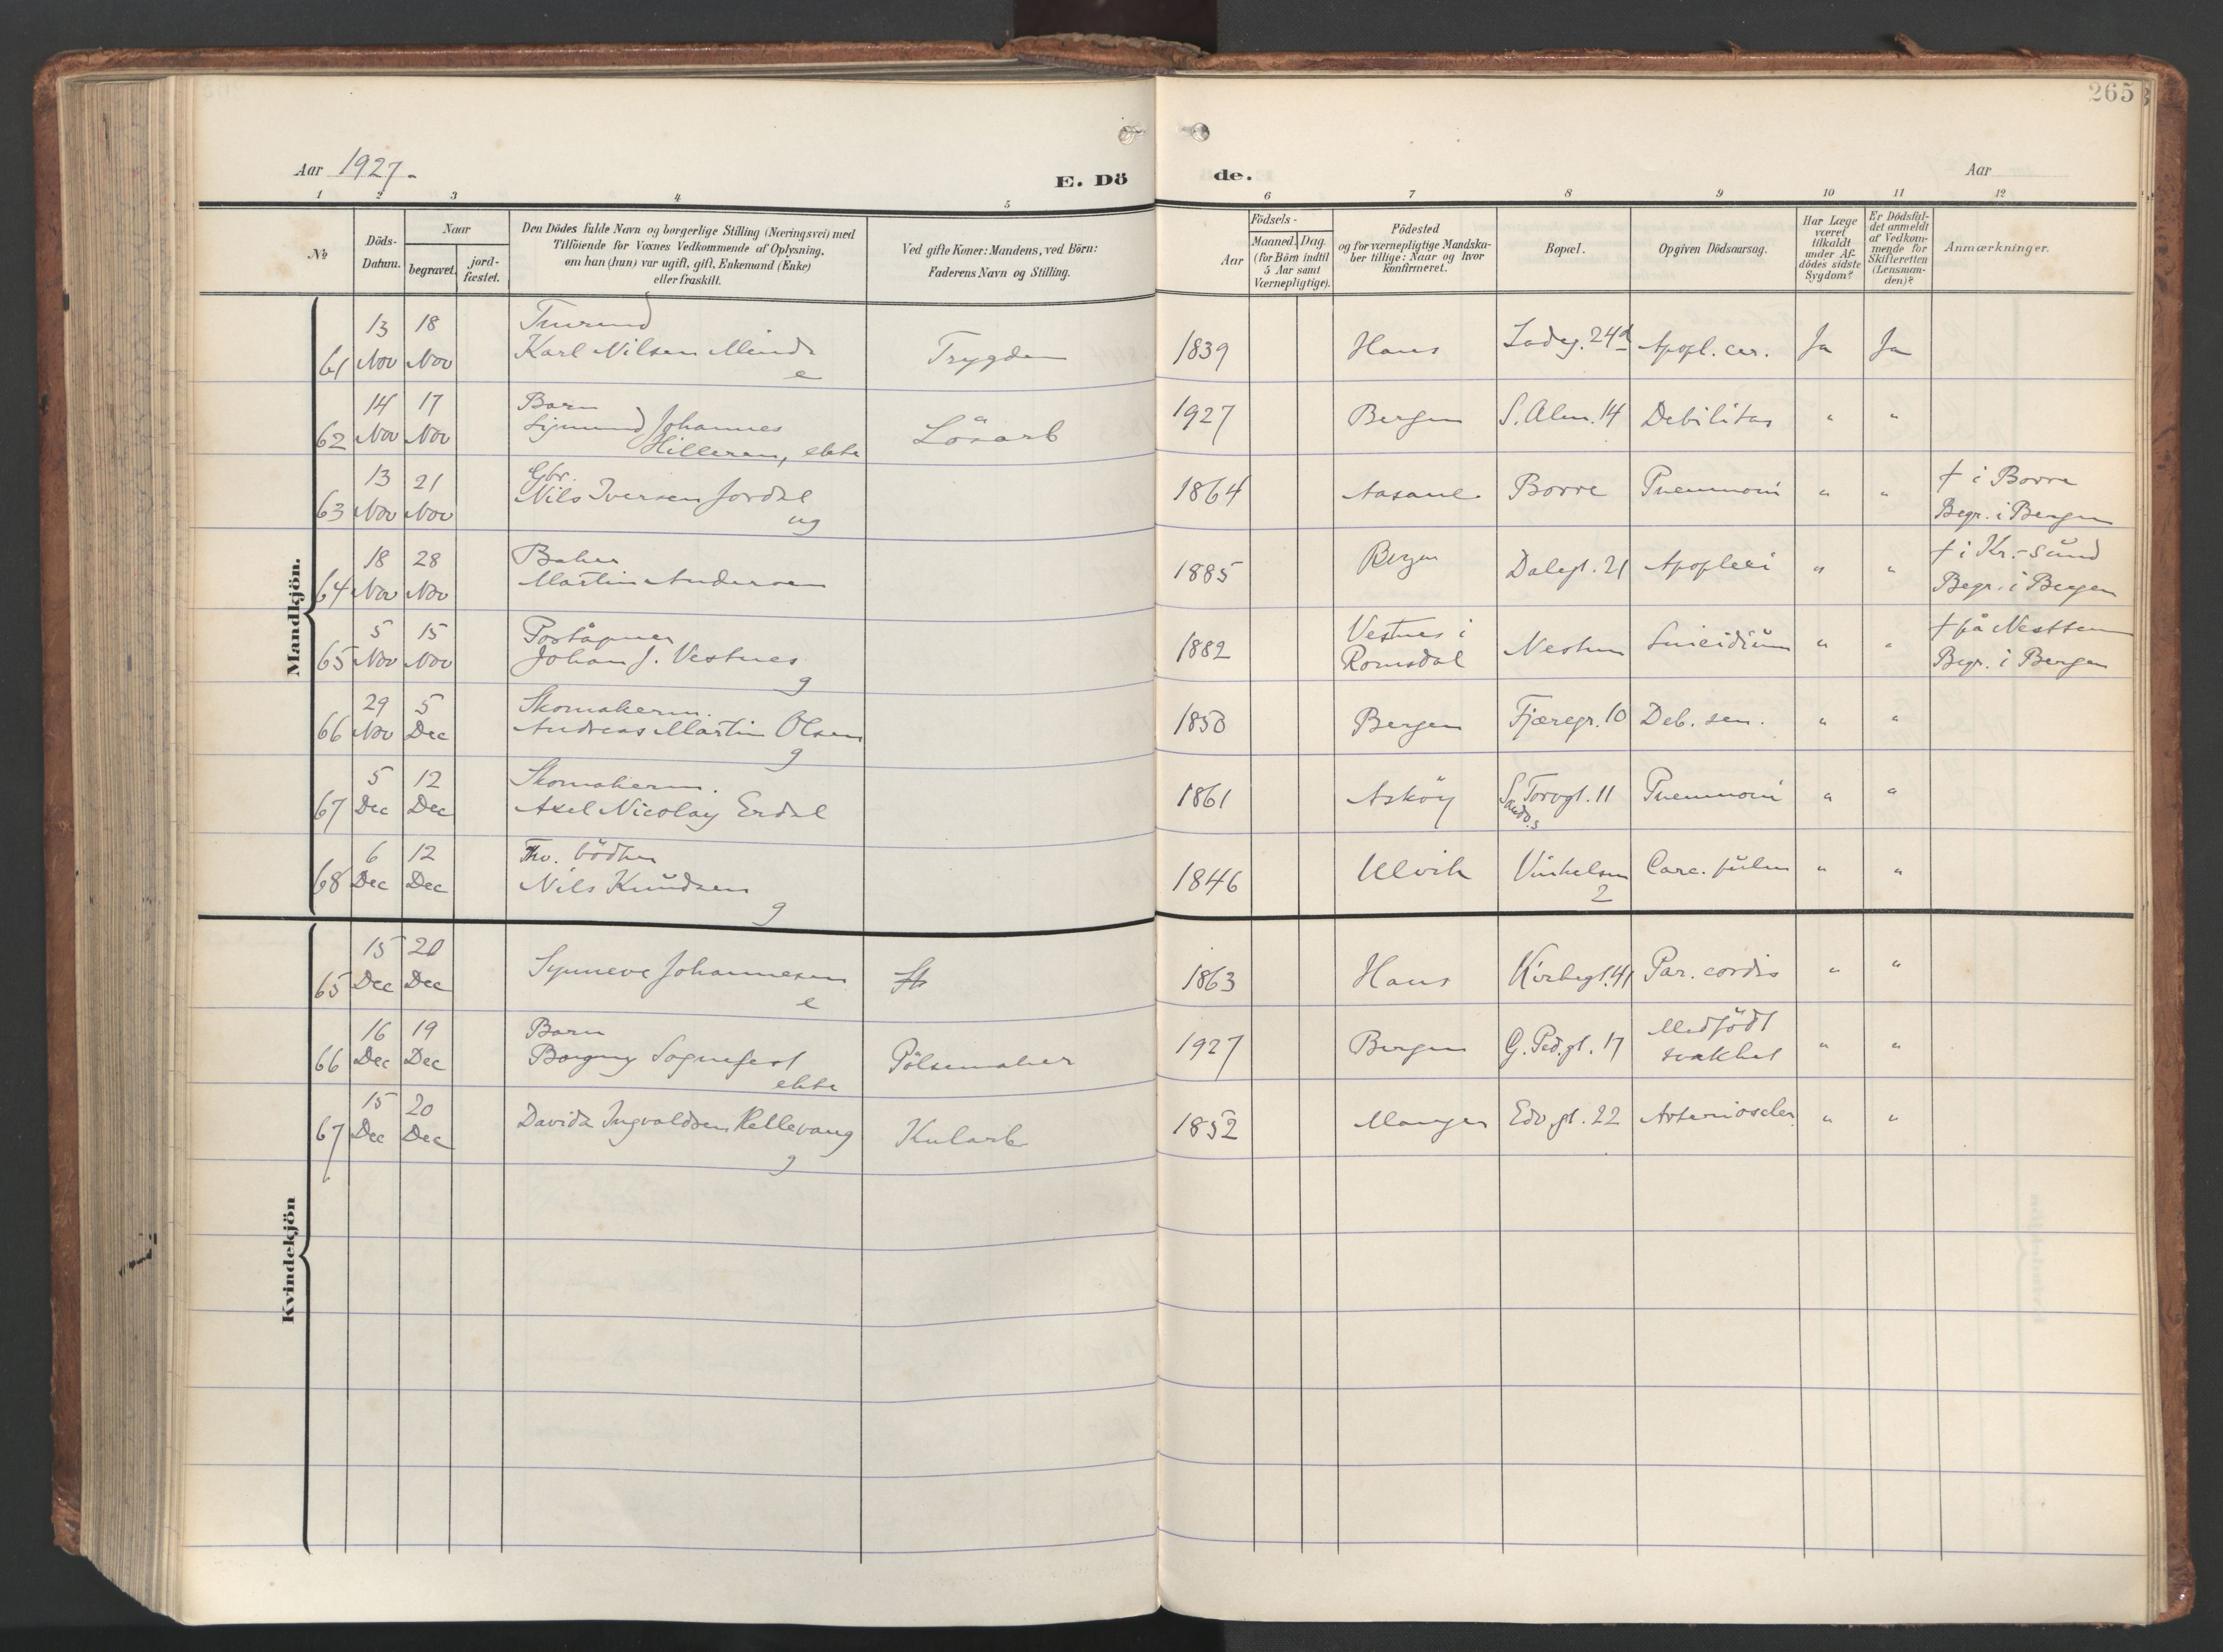 265
Aar 1927.
E. Dö de.
Aar
1 2 3 4 5 6 7 8 9 10 11 12
№
Döds-Datum.
Naar
begravet.
jord-fæstet.
Den Dödes fulde Navn og borgerlige Stilling (Næringsvei) med
Tilföiende for Voxnes Vedkommende af Oplysning,
om han (hun) var ugift, gift, Enkemand (Enke)
eller fraskilt.
Ved gifte Koner: Mandens, ved Börn:
Faderens Navn og Stilling.
Födsels-
Aar
Maaned. Dag.
(for Börn indtil
5 Aar samt
Værnepligtige).
Födested
og for værnepligtige Mandska-
ber tillige: Naar og hvor
konfirmeret.
Bopæl.
Opgiven Dödsaarsag.
Har Læge
været
tilkaldt
under Af-
dödes sidste
Sygdom?
Er Dödsfal-
det anmeldt
af Vedkom-
mende for
Skifteretten
(Lensman-
den)?
Anmærkninger.
Mandkjön.
61 13 Nov 18 Nov
Karl Nilsen Minde
e
Trygden 1839 Haus Ladeg. 24d Apopl. cer. Ja Ja
62 14 Nov 17 Nov
Barn
Sigmund Johannes
Hilleren, ekte
Lösarb 1927 Bergen S. Alm. 14 Debilitas " "
63 13 Nov 21 Nov
Gbr.
Nils Iversen Jordal
ug
1864 Aasane Borre Pneumoni " "
† i Borre
Begr. i Bergen
64 18 Nov 28 Nov
Baker
Martin Andersen
1885 Bergen Dalegt. 21 Apoplexi " "
† i Kr.-sund
Begr. i Bergen
65 5 Nov 15 Nov
Poståpner
Johan J. Vestnes
g
1882 Vestnes i
Romsdal
Nestun Suicidium " "
† på Nesttun
Begr. i Bergen
66 29 Nov 5 Dec
Skomakerm.
Andreas Martin Olsen
g
1850 Bergen Fjæregr. 10 Deb. sen. " "
67 5 Dec 12 Dec
Skomakerm.
Axel Nicolay Erdal
1861 Asköy Torvgt. 11
Sandv.s
Pneumoni " "
68 6 Dec 12 Dec
Fhv. bödker
Nils Knudsen
g
1846 Ulvik Vinkelsm
2
Carc. pulm " "
Kvindekjön
65 15 Dec 20 Dec
Synneve Johannesen
e
1863 Haus Kirkegt. 41 Par. cordis " "
66 16 Dec 19 Dec
Barn
Borgny Sognefest
ekte
Pölsemaker 1927 Bergen G. Ped.gt. 17 Medfödt
svakhet
" "
67 15 Dec 20 Dec
Davida Ingvaldsen Rellevang
g
Kularb 1852 Manger Edv.gt. 22 Arterioscler. " "